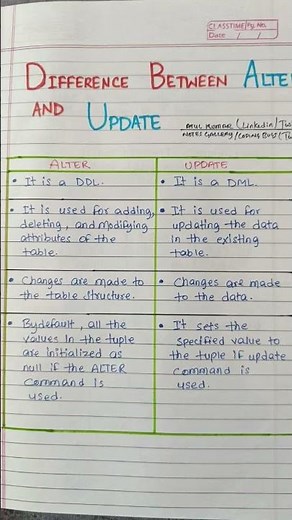 CLASSTIME Pg. No.
Date / /
DIFFERENCE BETWEEN ALTE
AND UPDATE
ATUL KUMAR (LINKEDIN/
NOTES GALLERY/
ALTER
• It is a DDL.
• It is used for adding,
deleting, and modifying
attributes of the
table.
• Changes are made to
the table structure.
• By default, all the
values in the tuple
are initialized as
null if the ALTER
Command is
used.
UPDATE
• It is a DML.
• It is used for
updating the data
in the existing
table.
• Changes are made
to the data.
• It sets the
specified value to
the tuple if update
command is
used.